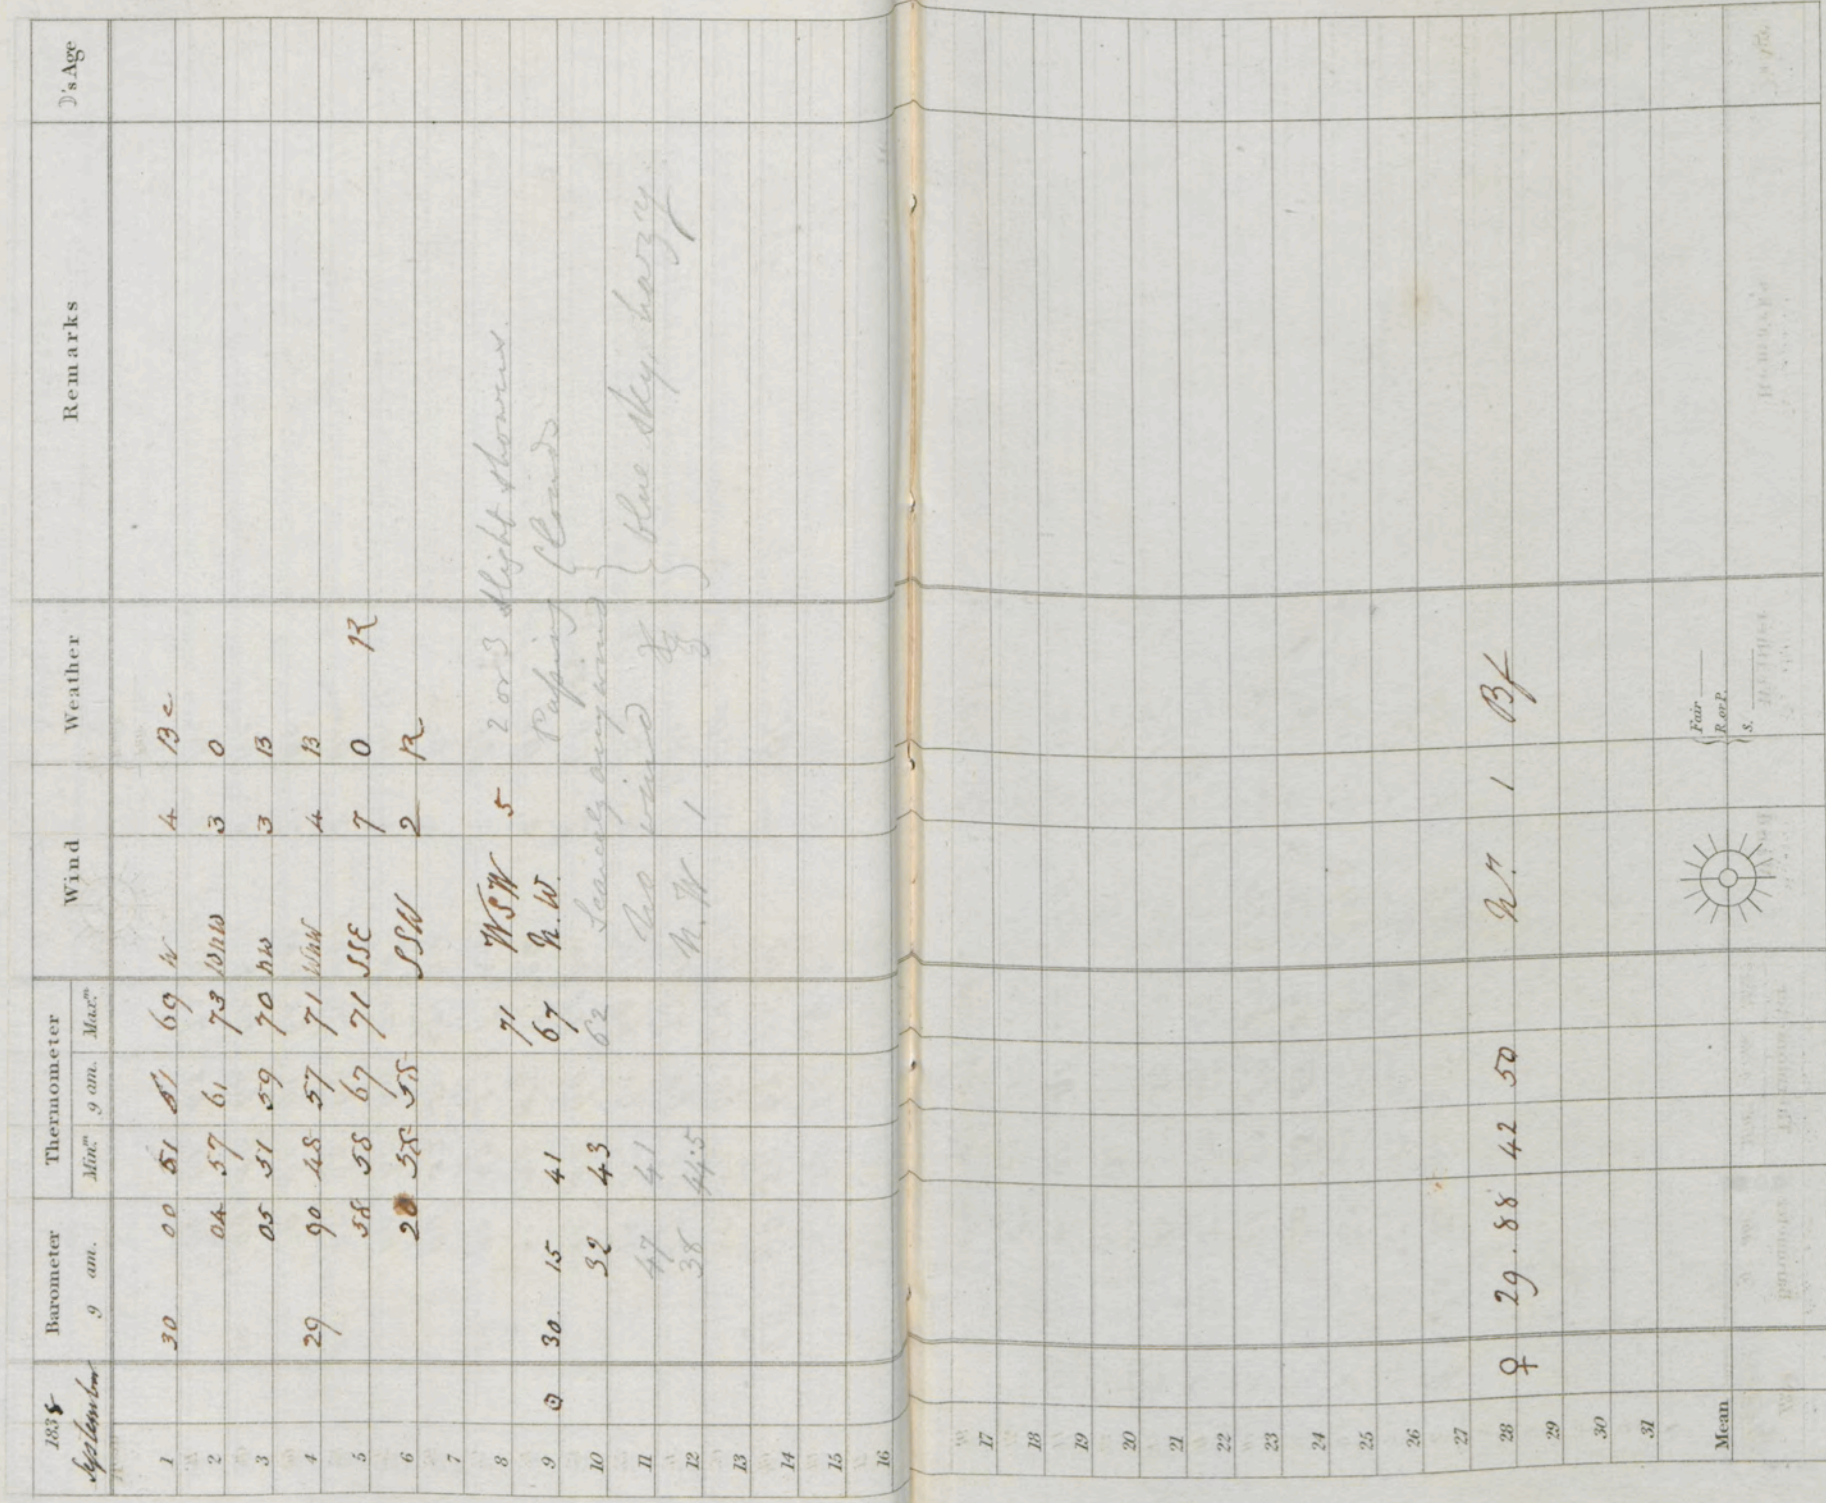 1838 Barometer Thermometer Wind Weather Remarks ☽'s Age
September 9 am. Min.m 9 am. Max.m
1 30 00 51 51 69 W 4 Bc
2 04 57 61 73 WNW 3 O
3 05 51 59 70 NW 3 B
4 29 90 48 57 71 WNW 4 B
5 58 58 67 71 SSE 7 O R
6 20 58 58 SSW 2 R
7
8 71 WSW 5 2 or 3 slight showers
9 ☉ 30. 15 41 67 N.W. Passing Clouds
10 32 43 62 Scarcely any wind
11 47 41 No wind blue sky, hazy.
12 38 44.5 N.W 1
13
14
15
16
17
18
19
20
21
22
23
24
25
26
27
28 ♀ 29.88 42 50 N. 1 Bf
29
30
31
Mean Fair
R. or P.
S.